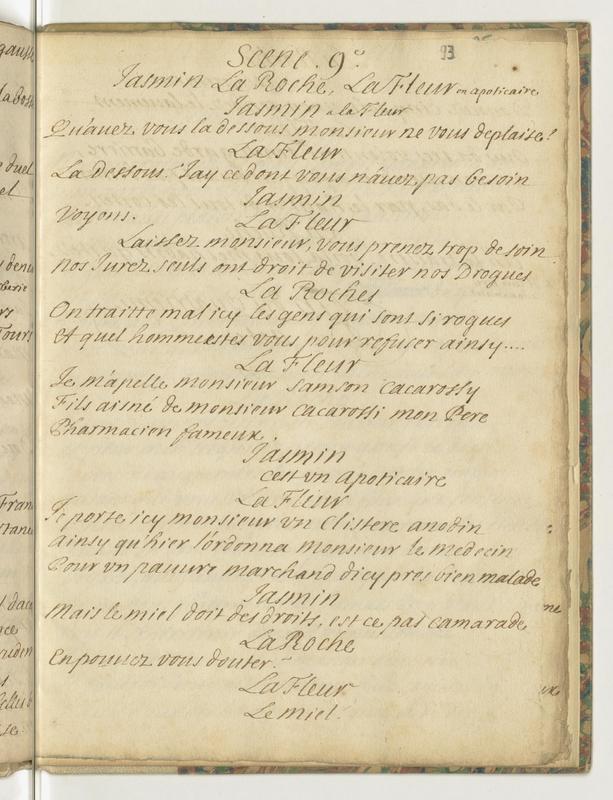 93
Scene. 9.e
Jasmin La Roche, La Fleur en apoticaire
Jasmin a la Fleur
Qu'auez vous la dessous monsieur ne vous deplaise!
La Fleur
La dessous. J'ay ce dont vous n'auez pas besoin
Jasmin
Voyons.
La Fleur
Laissez monsieur, vous prenez trop de soin
nos Jurez seuls ont droit de visiter nos Drogues
La Roches
On traitte mal icy les gens qui sont si rogues
Et quel homme estes vous pour refuser ainsy....
La Fleur
Je m'apelle monsieur Samson Cacarossy
Fils aisné de monsieur Cacarossi mon Pere
Pharmacien fameux.
Jasmin
C'est vn Apoticaire
La Fleur
Je porte icy monsieur vn Clistere anodin
ainsy qu'hier l'ordonna monsieur le medecin
Pour vn pauure marchand d'icy pres bien malade
Jasmin
Mais le miel doit des droits, est ce pas camarade
La Roche
En pouuez vous douter?
La Fleur
Le miel.